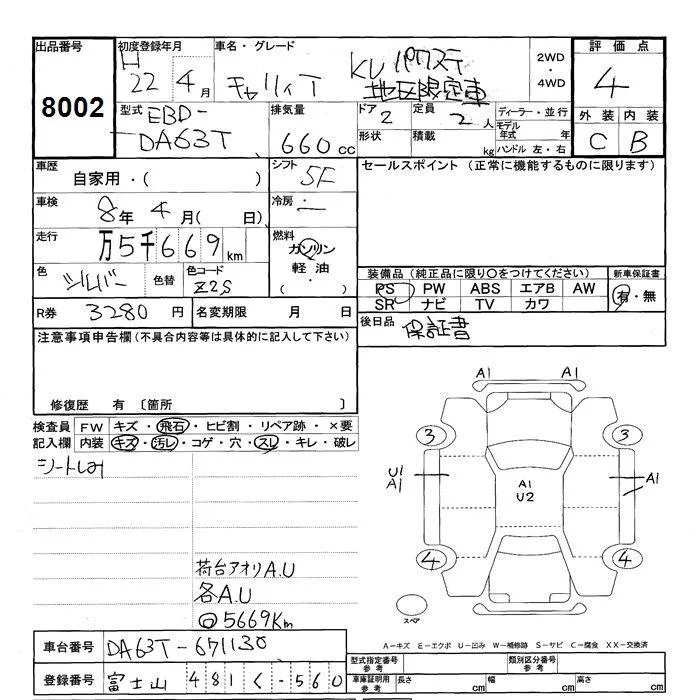 出品番号 初度登録年月 車名・グレード 評価点
8002
H22年 4月 キャリイT KU パワステ 地区限定車 2WD・4WD 4
型式 EBD-DA63T 排気量 660cc ドア 2 定員 2人 ディーラー・並行 外装 内装
形状 積載 kg モデル年式 年 ハンドル 左・右 C B
車歴 自家用・( ) シフト 5F セールスポイント (正常に機能するものに限ります)
車検 8年 4月( 日) 冷房
走行 万5千669km 燃料 ガソリン 軽油 ( ・ )
色 シルバー 色替 色コード Z2S
装備品(純正品に限り○をつけてください) 新車保証書
PS PW ABS エアB AW 有・無
SR ナビ TV カワ
R券 3280円 名変期限 月 日 後日品 保証書
注意事項申告欄(不具合内容等は具体的に記入して下さい)
修復歴 有〔箇所 〕
検査員記入欄 FW キズ・飛石・ヒビ割・リペア跡・×要
内装 キズ・汚レ・コゲ・穴・スレ・キレ・破レ
シートしみ
荷台アオリA.U
各A.U
5669Km
A1 A1
3 3
U1
A1
A1
U2
A1
4 4
スペア
A-キズ E-エクボ U-凹み W-補修跡 S-サビ C-腐食 XX-交換済
車台番号 DA63T-671130
登録番号 富士山 481く-560
型式指定番号 参考 類別区分番号 参考
車庫証明用 参考 長さ cm 幅 cm 高さ cm